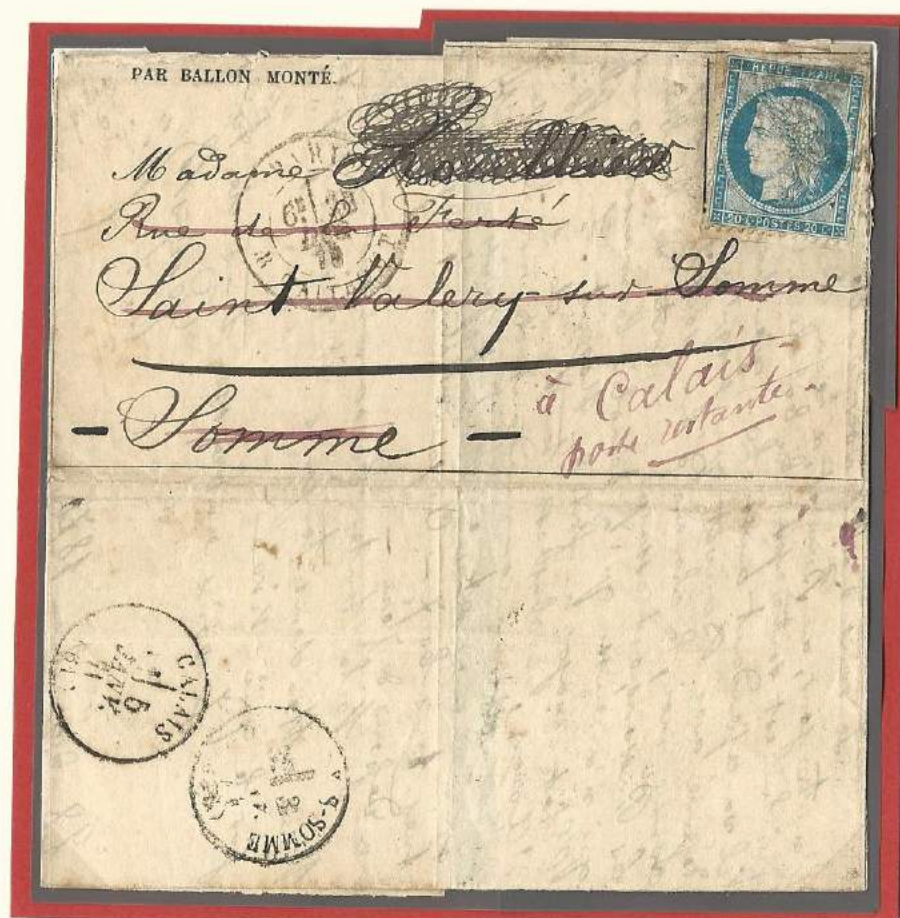 PAR BALLON MONTÉ.
REPUB. FRANC.
20 C. POSTES 20 C.
Madame
Rue de La Ferté
Saint Valery-sur-Somme
- Somme -
à Calais -
poste restante -
PARIS
6E
70
CALAIS
9
JANV.
71
S-SOMME
8
71